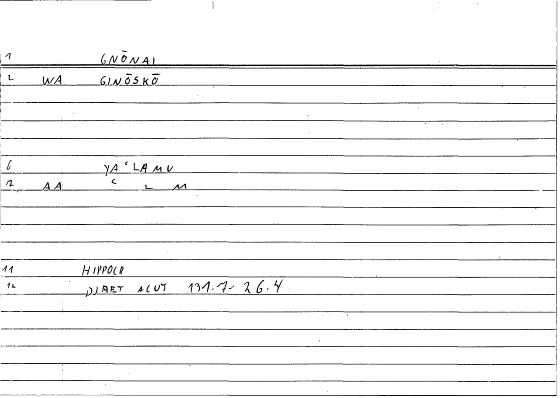 1 GNŌNAI
2 WA GINŌSKŌ
6 YAʿLAMU
2 AA ʿ L M
11 HIPPOCR
12 DIAET ACUT 131.7- 26.4